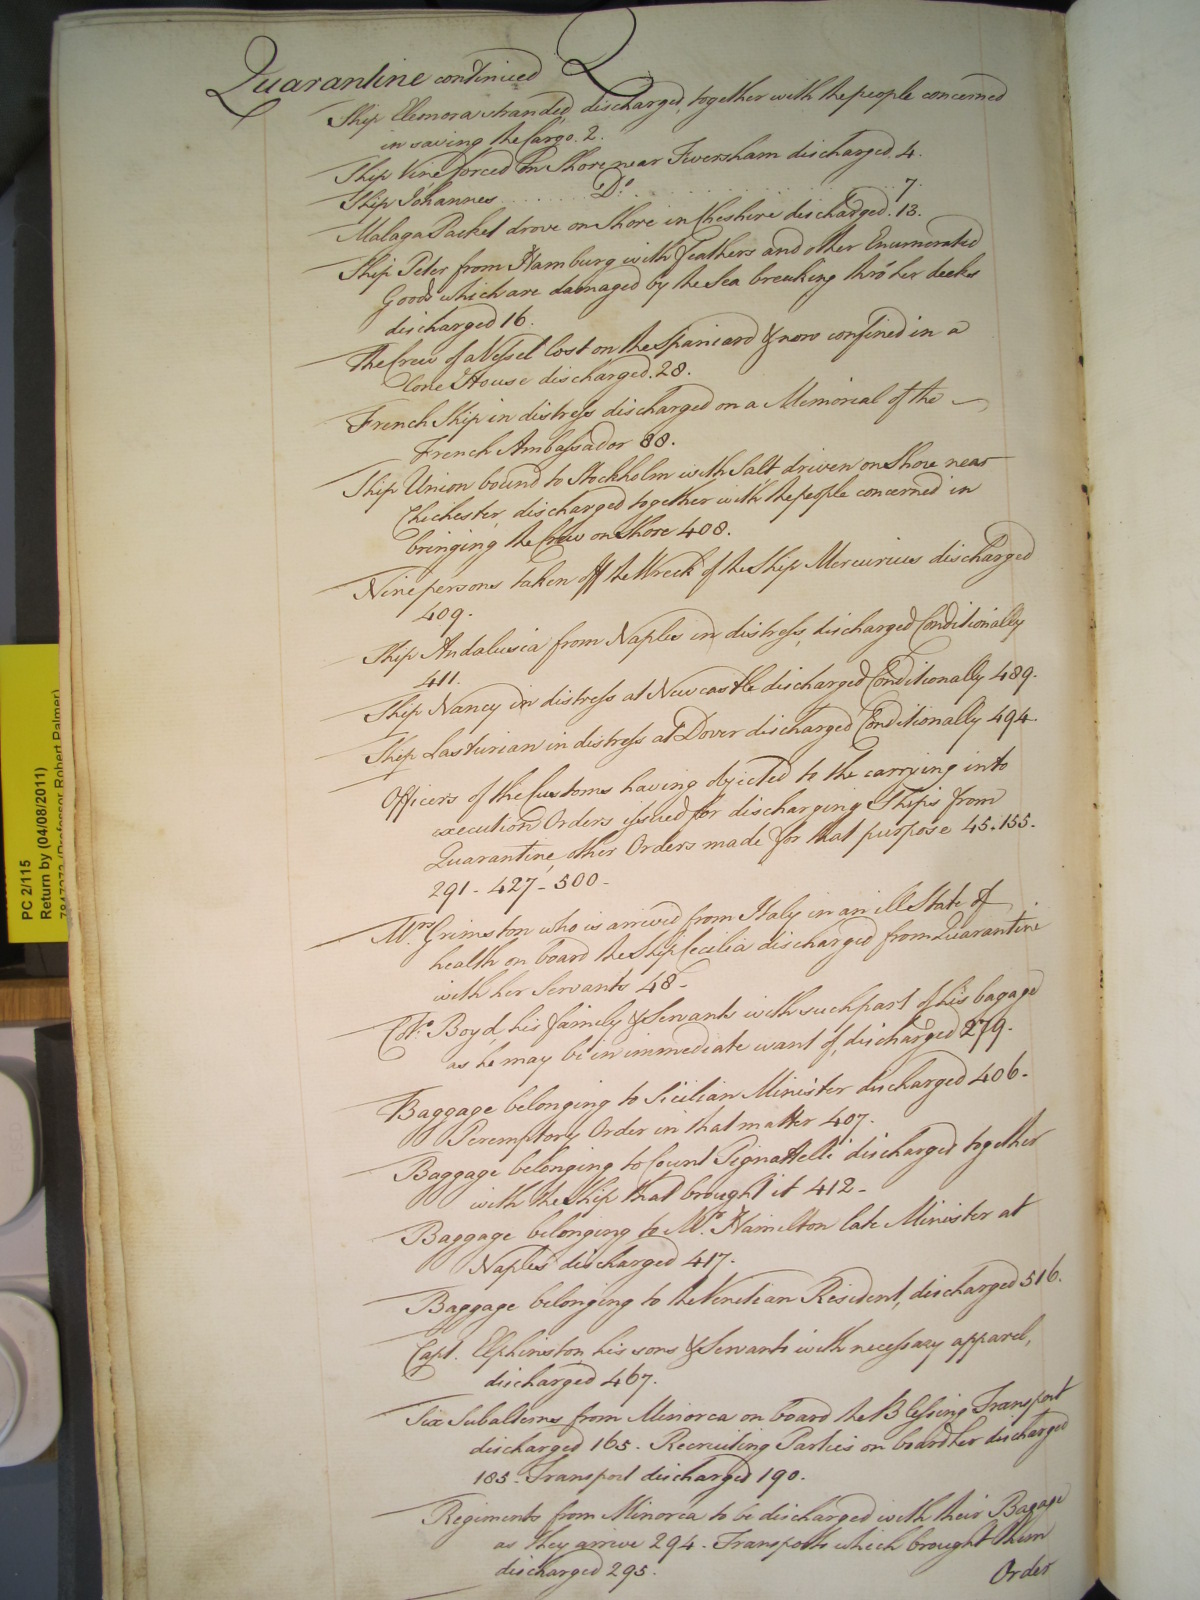 Quarantine continued Q
Ship Eleonora stranded, discharged, together with the people concerned
in saving the Cargo. 2.
Ship Vine forced on Shore near Feversham discharged. 4.
Ship Johannes . . . . . . D.o . . . . . . . . . 7.
Malaga Packet drove on Shore in Cheshire discharged. 13.
Ship Peter from Hamburg with Feathers and other Enumerated
Goods which are damaged by the Sea breaking thro' her decks
discharged 16.
The Crew of a Vessel lost on the Spaniard & now confined in a
lone House discharged. 28.
French Ship in distress discharged on a Memorial of the
French Ambassador 88.
Ship Union bound to Stockholm with Salt driven on Shore near
Chichester, discharged together with the people concerned in
bringing the Crew on Shore 408.
Nine persons taken off the Wreck of the Ship Mercurius discharged
409.
Ship Andalusia from Naples in distress, discharged Conditionally
411.
Ship Nancy in distress at Newcastle discharged Conditionally 489.
Ship Lasturian in distress at Dover discharged Conditionally 494.
Officers of the Customs having objected to the carrying into
execution Orders issued for discharging Ships from
Quarantine, other Orders made for that purpose 45. 155.
291 - 427 - 500 -
Mrs. Grimston who is arrived from Italy in an ill State of
health on board the Ship Cecilia discharged from Quarantine
with her Servants 48 -
Col.o Boyd his family & Servants with such part of his bagage
as he may be in immediate want of, discharged 279.
Baggage belonging to Sicilian Minister discharged 406 -
Peremptory Order in that matter 407.
Baggage belonging to Count Pignattelli discharged together
with the Ship that brought it 412 -
Baggage belonging to Mr. Hamilton late Minister at
Naples discharged 417.
Baggage belonging to the Venetian Resident, discharged 516.
Capt. Elphinston, his sons & Servants with necessary apparel,
discharged 467.
Six Subalterns from Minorca on board the Blessing Transport
discharged 165 - Recruiting Parties on board her discharged
185 - Transport discharged 190.
Regiments from Minorca to be discharged with their Bagage
as they arrive 294 - Transports which brought them
discharged 295.
Order
PC 2/115
Return by (04/08/2011)
(Professor Robert Palmer)